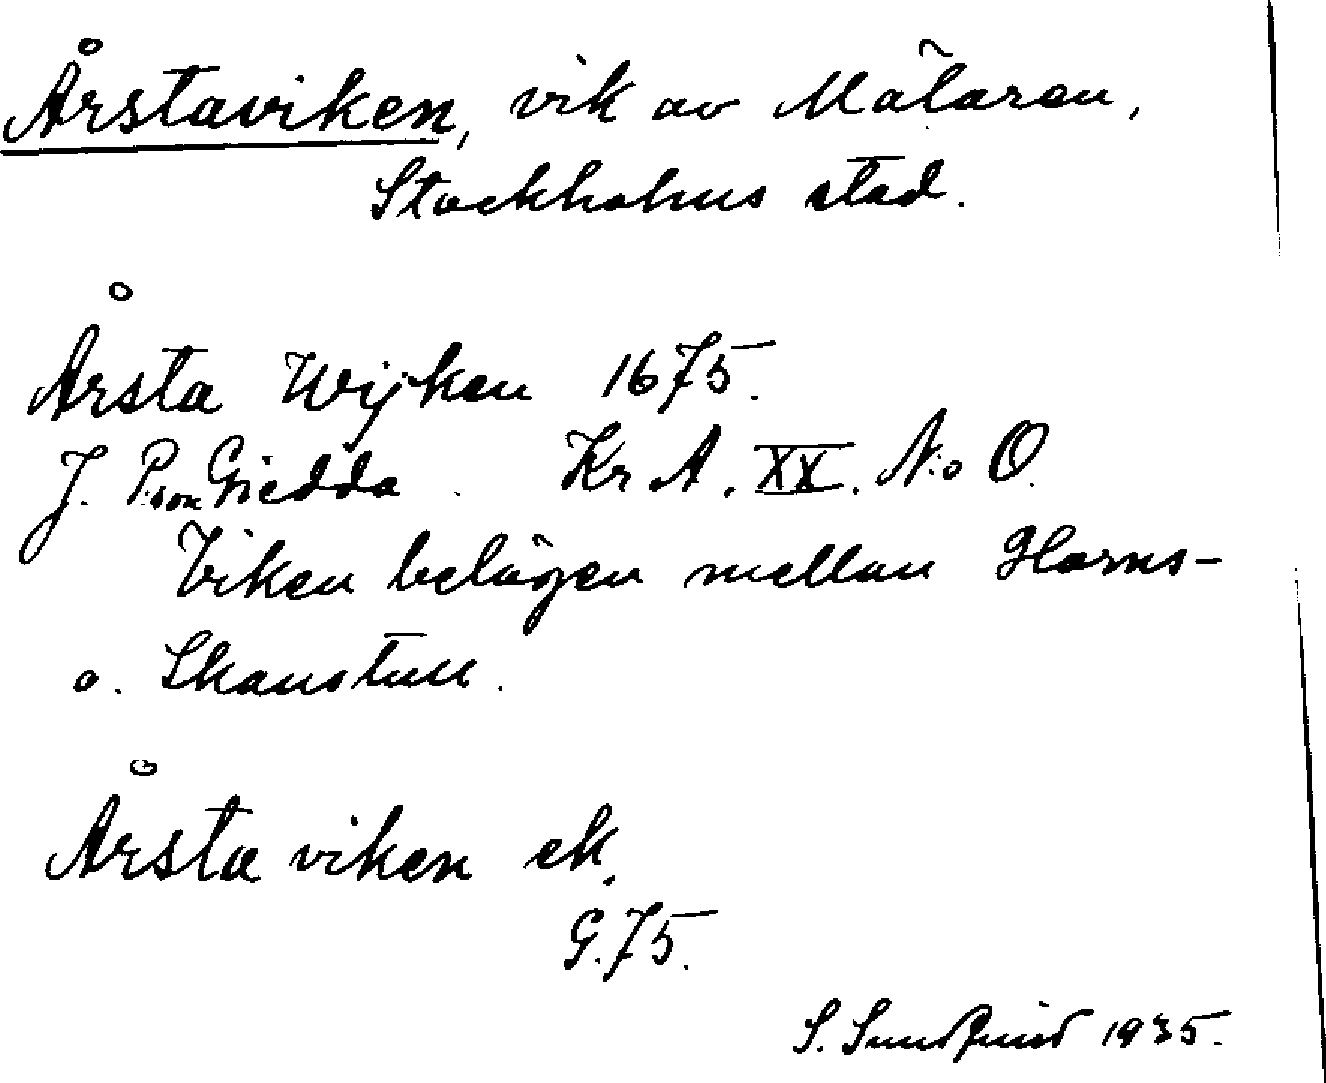 Årstaviken, vik av Mälaren,
Stockholms stad.
Årsta Wijken 1675.
J. P:son Giedda. Kr. A. XX. N:o O.
Viken belägen mellan Horns-
o. Skanstull.
Årsta viken ek.
G. 75.
S. Sundquist 1935.